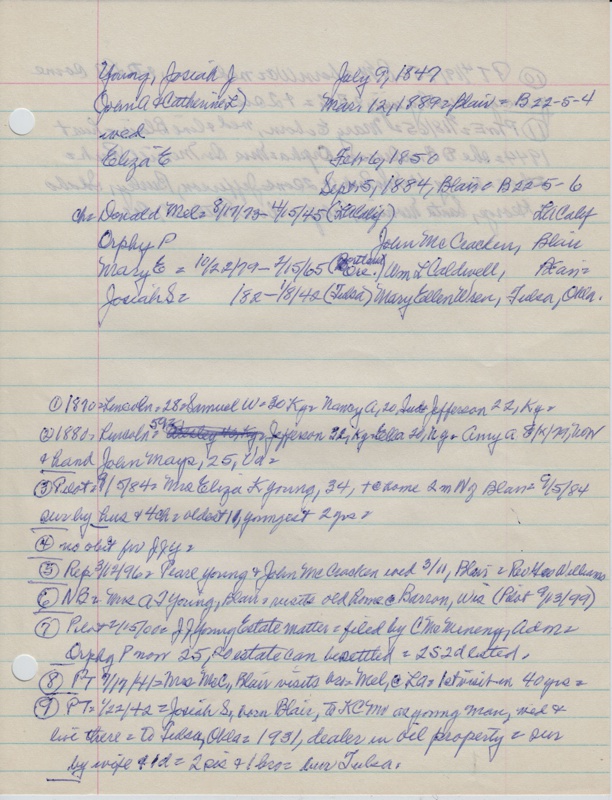 Young, Josiah J July 9, 1847
(John A & Catherine L) Mar. 12, 1889 = Blair = B 22-5-4
wed
Eliza E Feb 6, 1850
Sept. 5, 1884, Blair = B 22-5-6
ch = Donald Mel = 8/17/73 - 4/15/45 (LaCalif) LaCalif
Orphy P John McCracken, Blair
Mary E = 10/22/79 - 2/15/65 (Portland Ore.) Wm L Caldwell, Blair =
Josiah S = 182 - 1/8/42 (Tulsa) Mary Ellen Wren, Tulsa, Okla.
① 1870 = Lincoln = 28 = Samuel W = 30 Ky = Nancy A, 20, Jefferson 22, Ky =
② 1880 = Lincoln 593 Jefferson 32, Ky = Ella 20, Ky = Amy A
& hand John Mays, 25, Va =
③ Pilot = 9/5/84 = Mrs Eliza K Young, 34, + @ home 2 m N of Blair = 9/5/84
sur by hus & 4 ch = oldest 11, youngest 2 yrs =
④ no obit for JJY =
⑤ Rep 3/12/96 = Pearc Young & John McCracken wed 3/11, Blair = Rev Geo Williams
⑥ NB = Mrs A J Young, Blair = visits old home @ Barron, Wis (Pilot 9/13/99)
⑦ Pilot = 2/15/00 = J J Young Estate matter = filed by C McMineny, Adm =
Orphy P now 25, so estate can be settled = 252 deated.
⑧ PT 9/17/41 = Mrs McC, Blair visits bro = Mel, @ La = 1st visit in 40 yrs =
⑨ PT = 1/22/42 = Josiah S, born Blair, to KC Mo as young man, wed &
live there = to Tulsa, Okla = 1931, dealer in oil property = sur
by wife & 1 d = 2 sis & 1 bro = bur Tulsa.